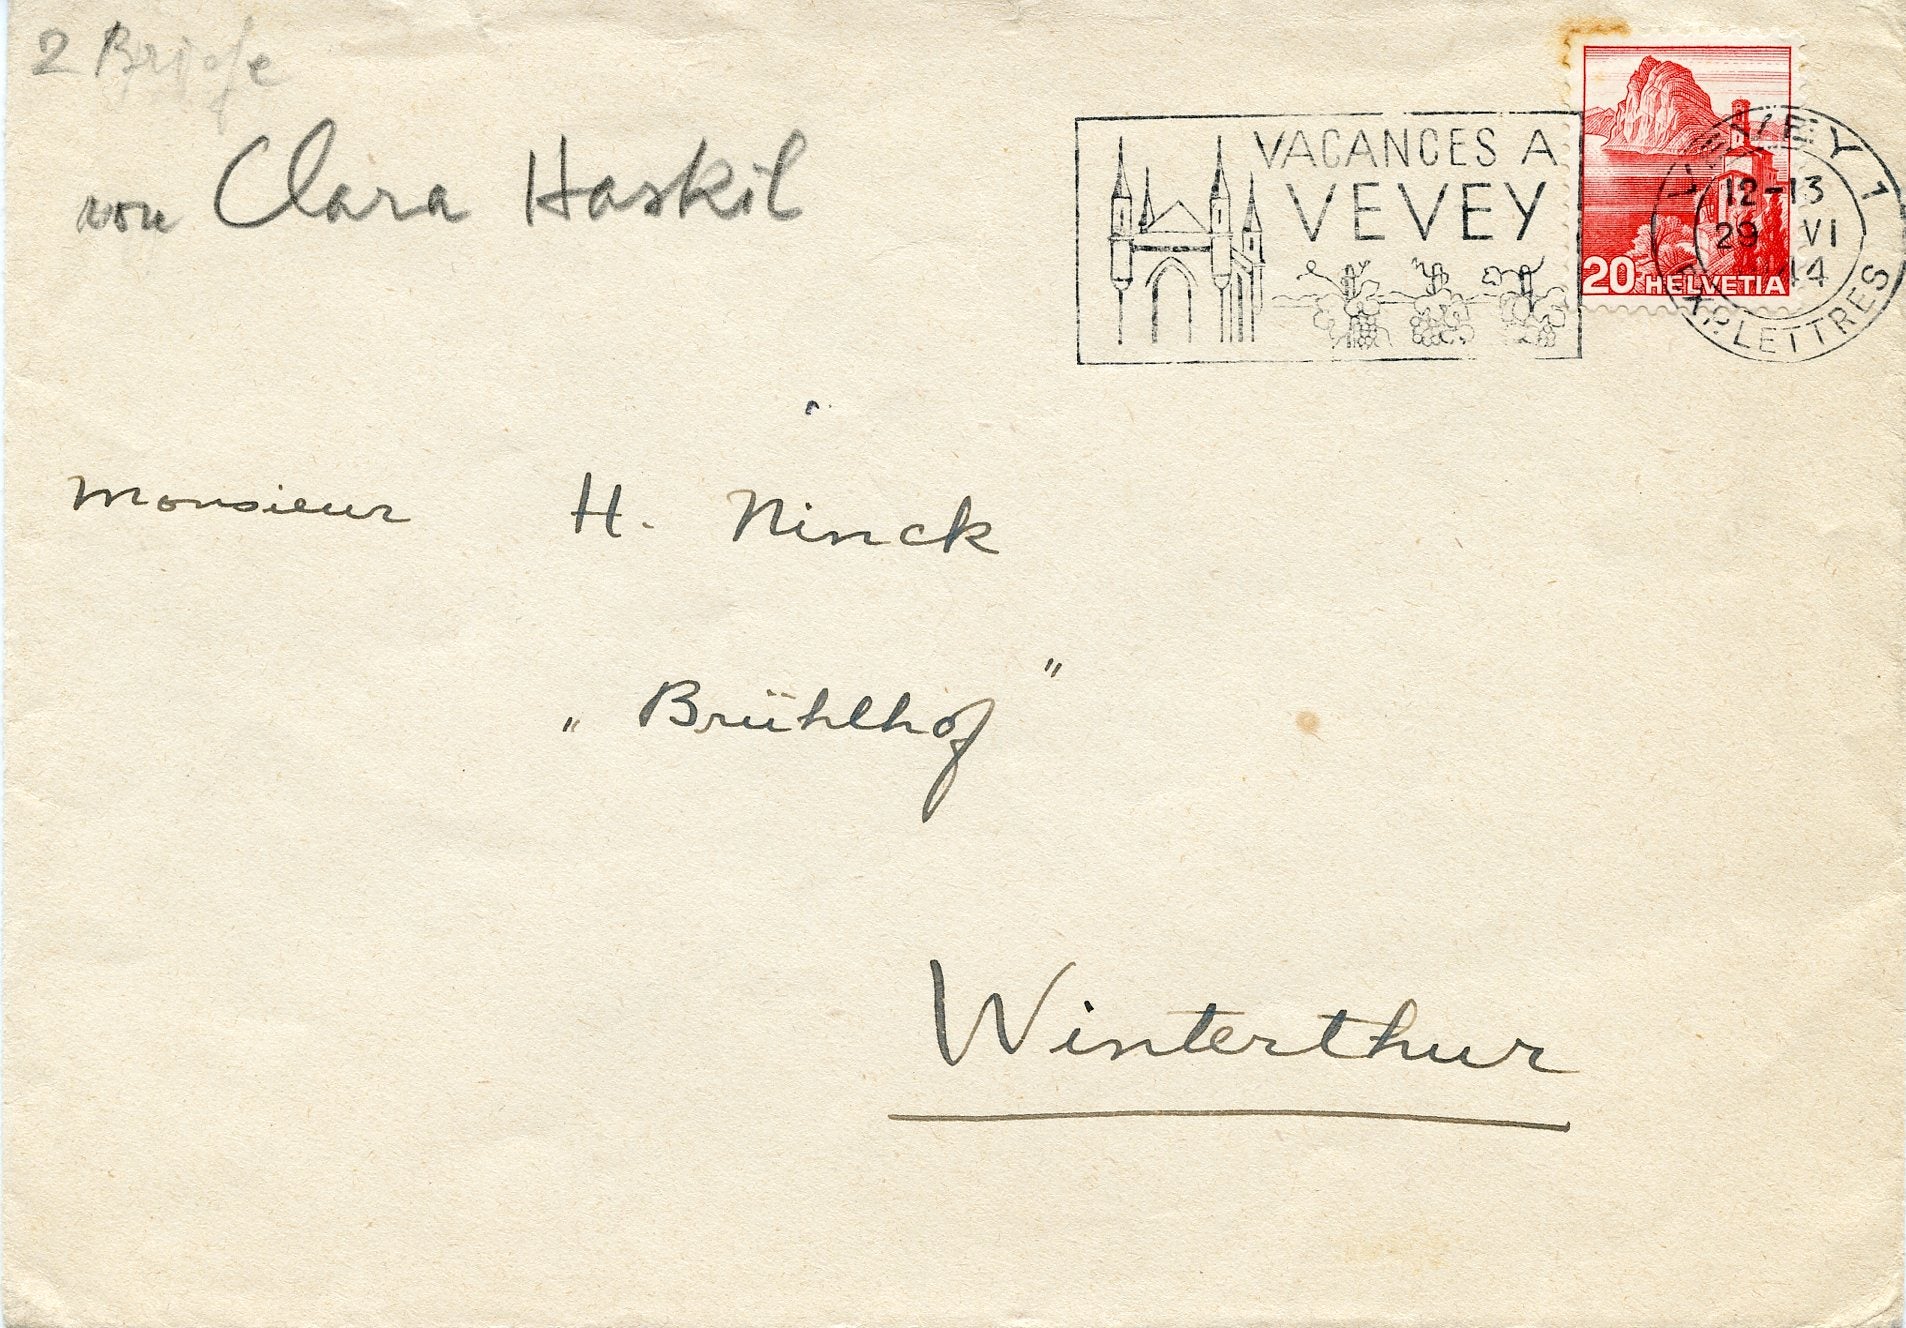 2 Briefe
von Clara Haskil
VACANCES A
VEVEY
VEVEY 1
12-13
29 VI
44
EXP. LETTRES
20 HELVETIA
Monsieur H. Ninck
„ Brühlhof "
Winterthur